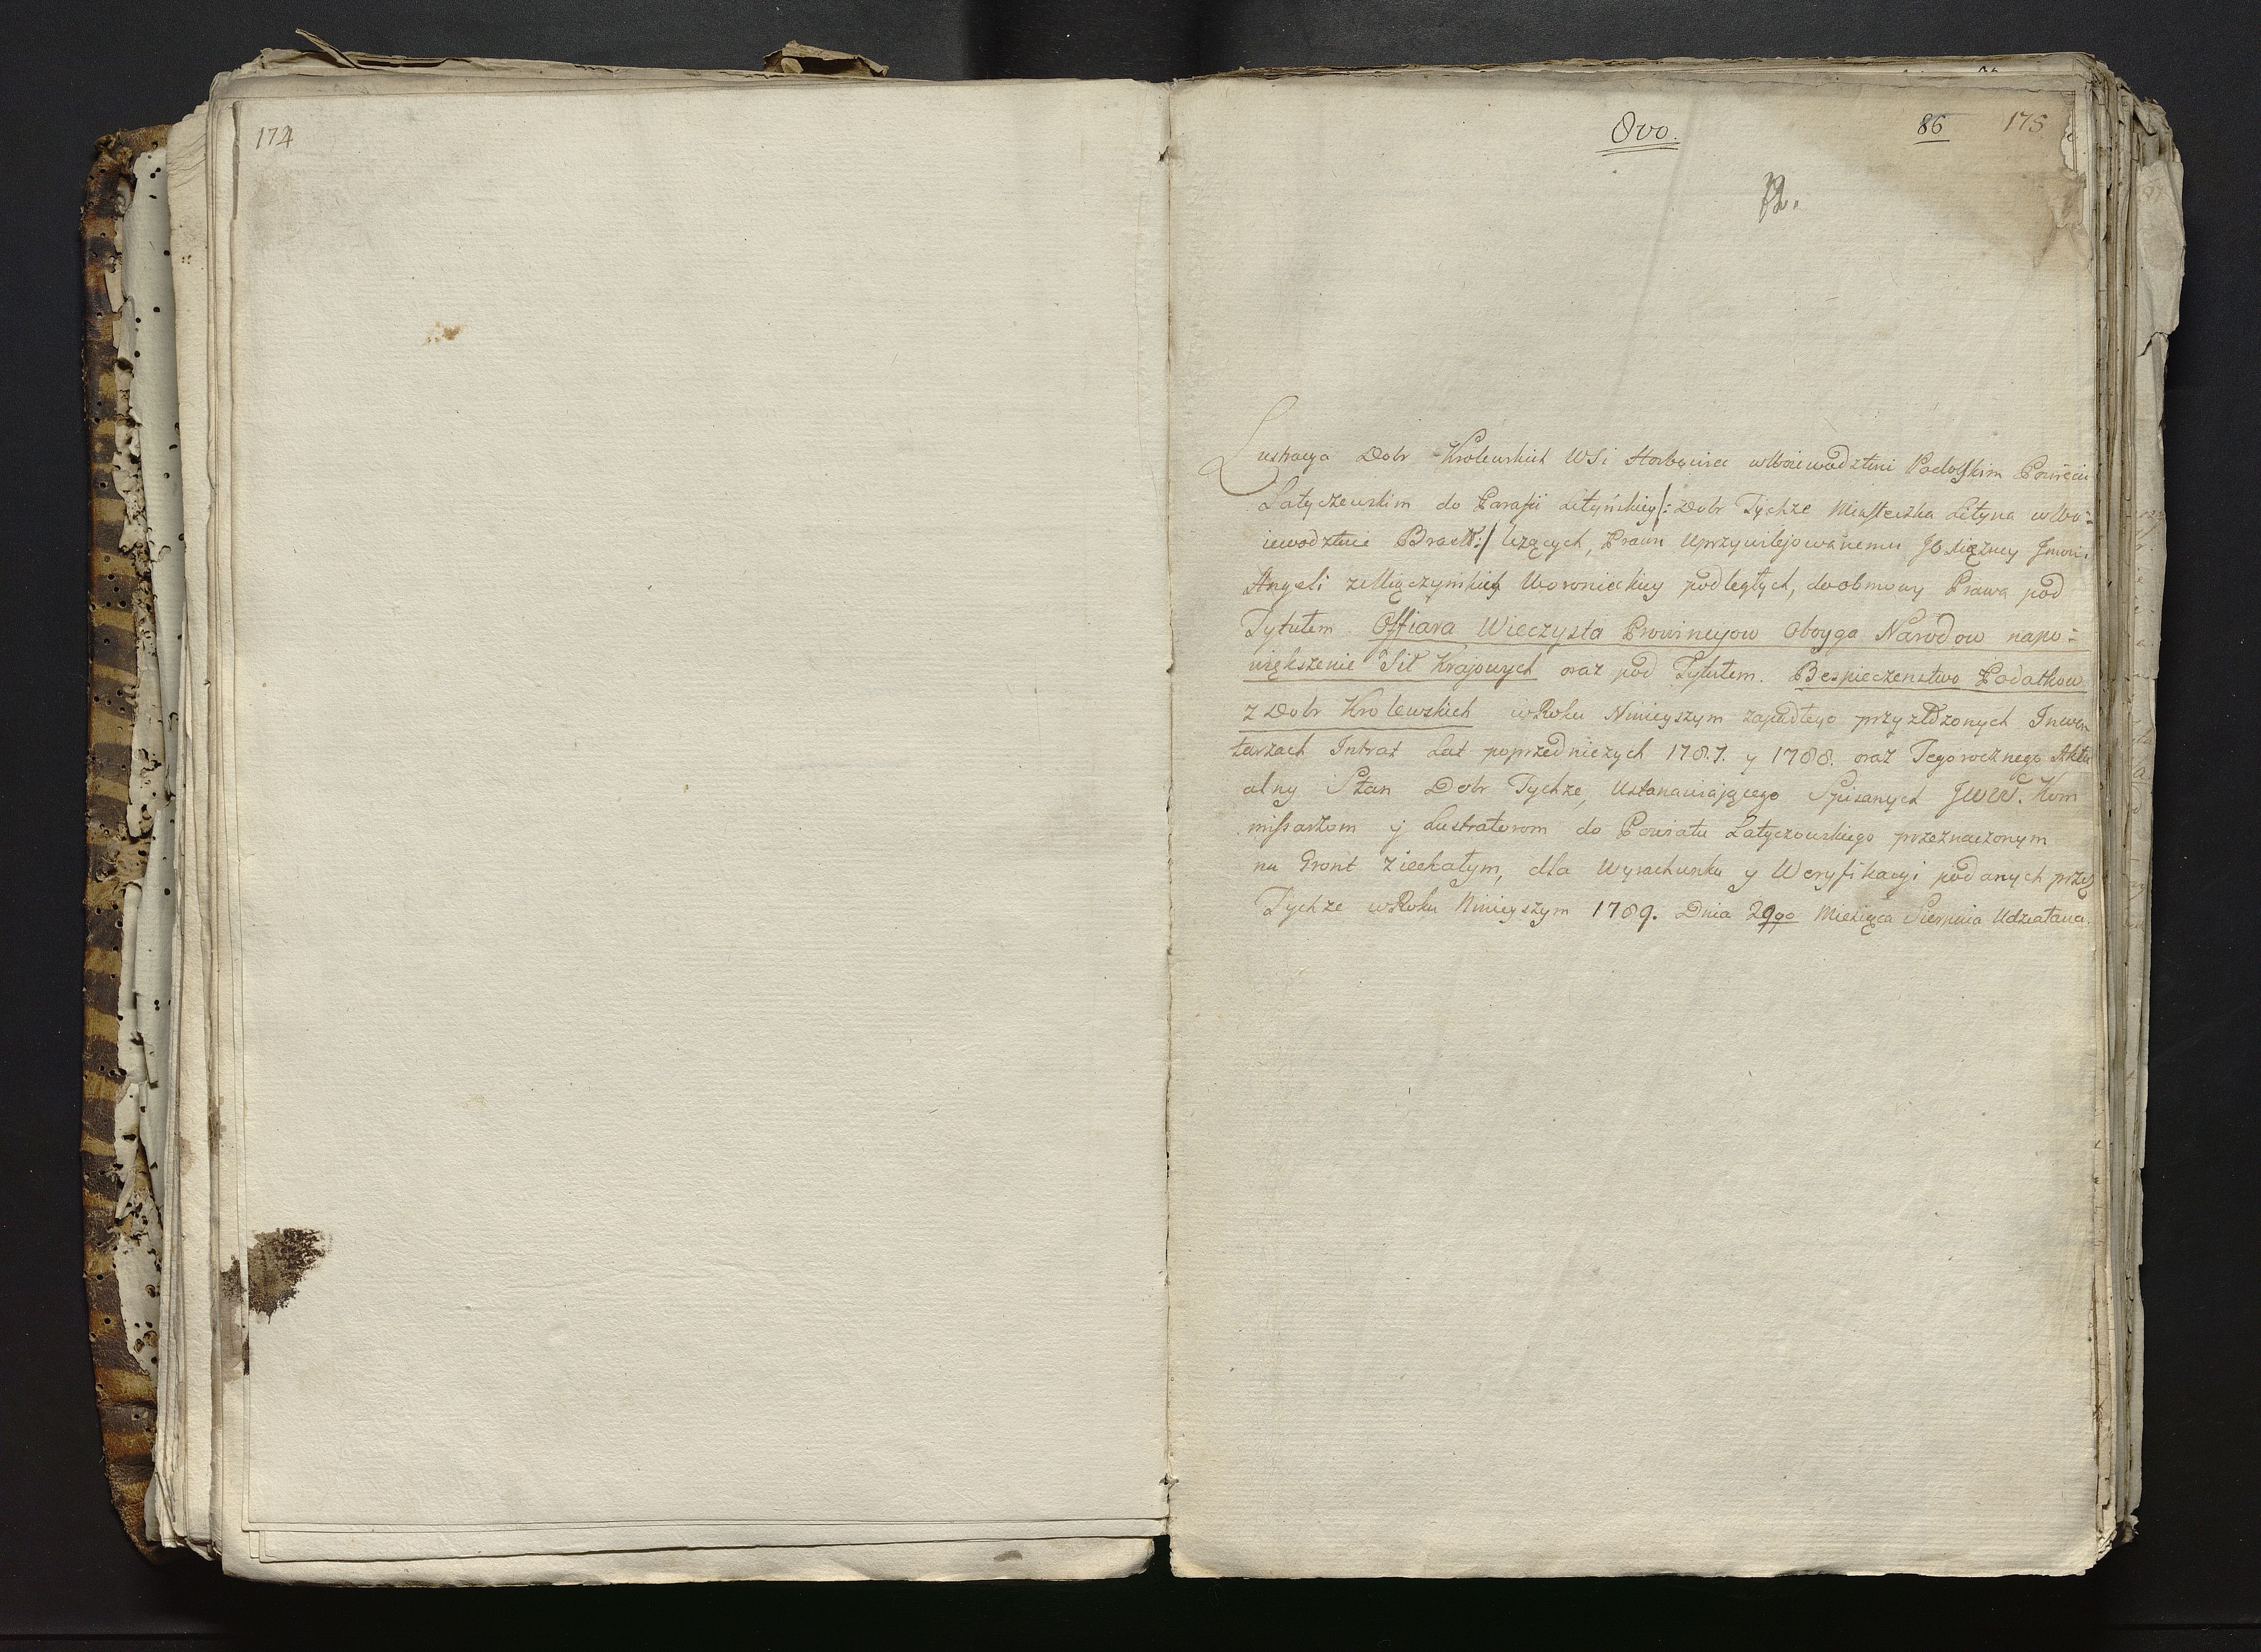 174
8vo.
86
175
Lustracya Dobr Krolewskich WSi Horbowiec w Woiewodztwie Podolskim Powiecie
Latyczewskim do Parafii Lityńskiey /: Dobr Tychże Miasteczka Lityna w Wo=
iewodztwie Bracł: / liżących, Prawu Uprzywilejowanemu JO Xiężney Jmci
Angeli z Miączyńskich Woronieckiey podległych, do obmowy Prawa pod
Tytułem Offiara Wieczysta Prowincyow Oboyga Narodow na po=
większenie Sił Krajowych oraz pod Tytułem. Bespieczenstwo Podatkow
z Dobr Krolewskich w Roku Ninieyszym zapadłego przyrzdzonych Inwen
tarzach Intrat Lat poprzedniczych 1787. y 1788. oraz Tegorocznego Aktu
alny Stan Dobr Tychże, Ustanawiającego Spisanych JWW. Kom
missarzom y Lustratorom do Powiatu Latyczowskiego przeznaczonym
na Gront ziechałym, dla Wyrachunku y Weryfikacyi podanych przez
Tychże w Roku Ninieyszym 1789. Dnia 29go Miesiąca Sierpnia Udziałana.